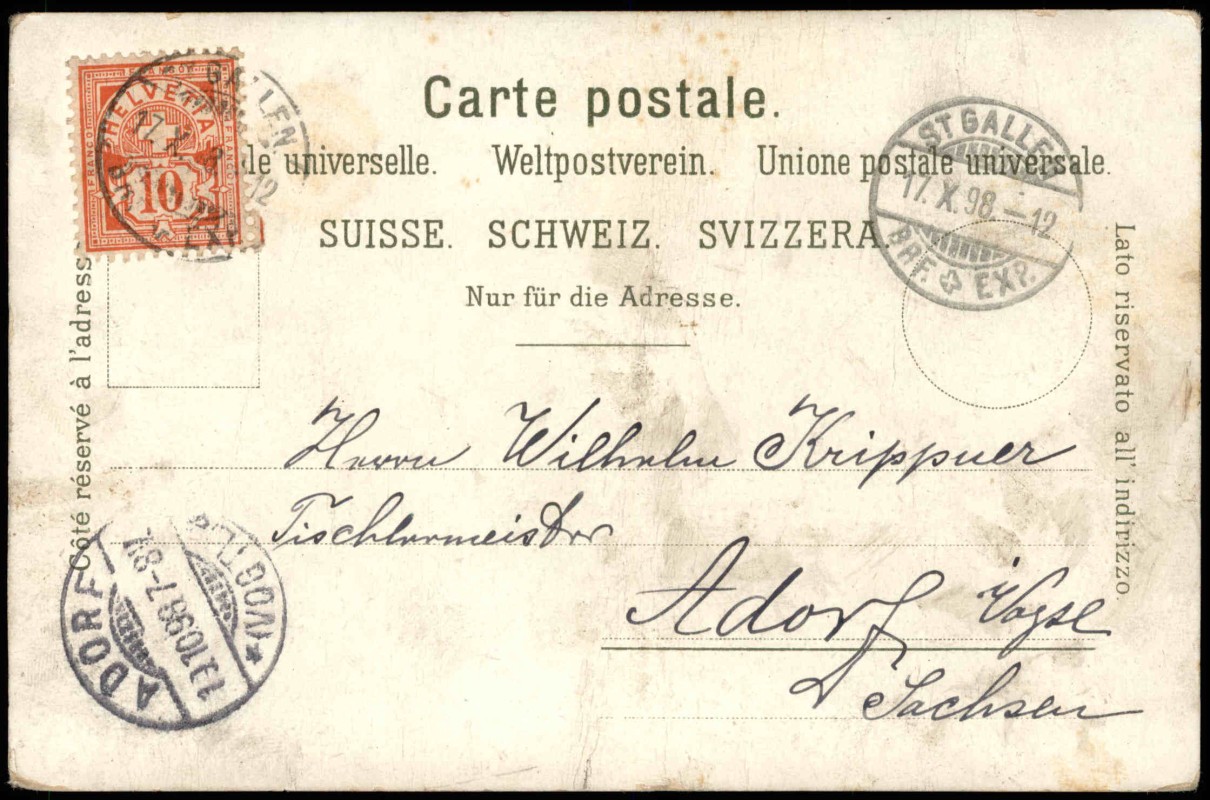 Carte postale.
le universelle. Weltpostverein. Unione postale universale.
SUISSE. SCHWEIZ. SVIZZERA.
Nur für die Adresse.
Côté réservé à l'adress
Lato riservato all' indirizzo.
HELVETIA
FRANCO
FRANCO
10
GALLEN
17. X
12
ST GALLEN
17. X. 98 – 12
BRF. EXP.
Herrn Wilhelm Krippner
Tischlermeister
Adorf
Sachsen
ADORF
10 98 7-8
(VOGTL